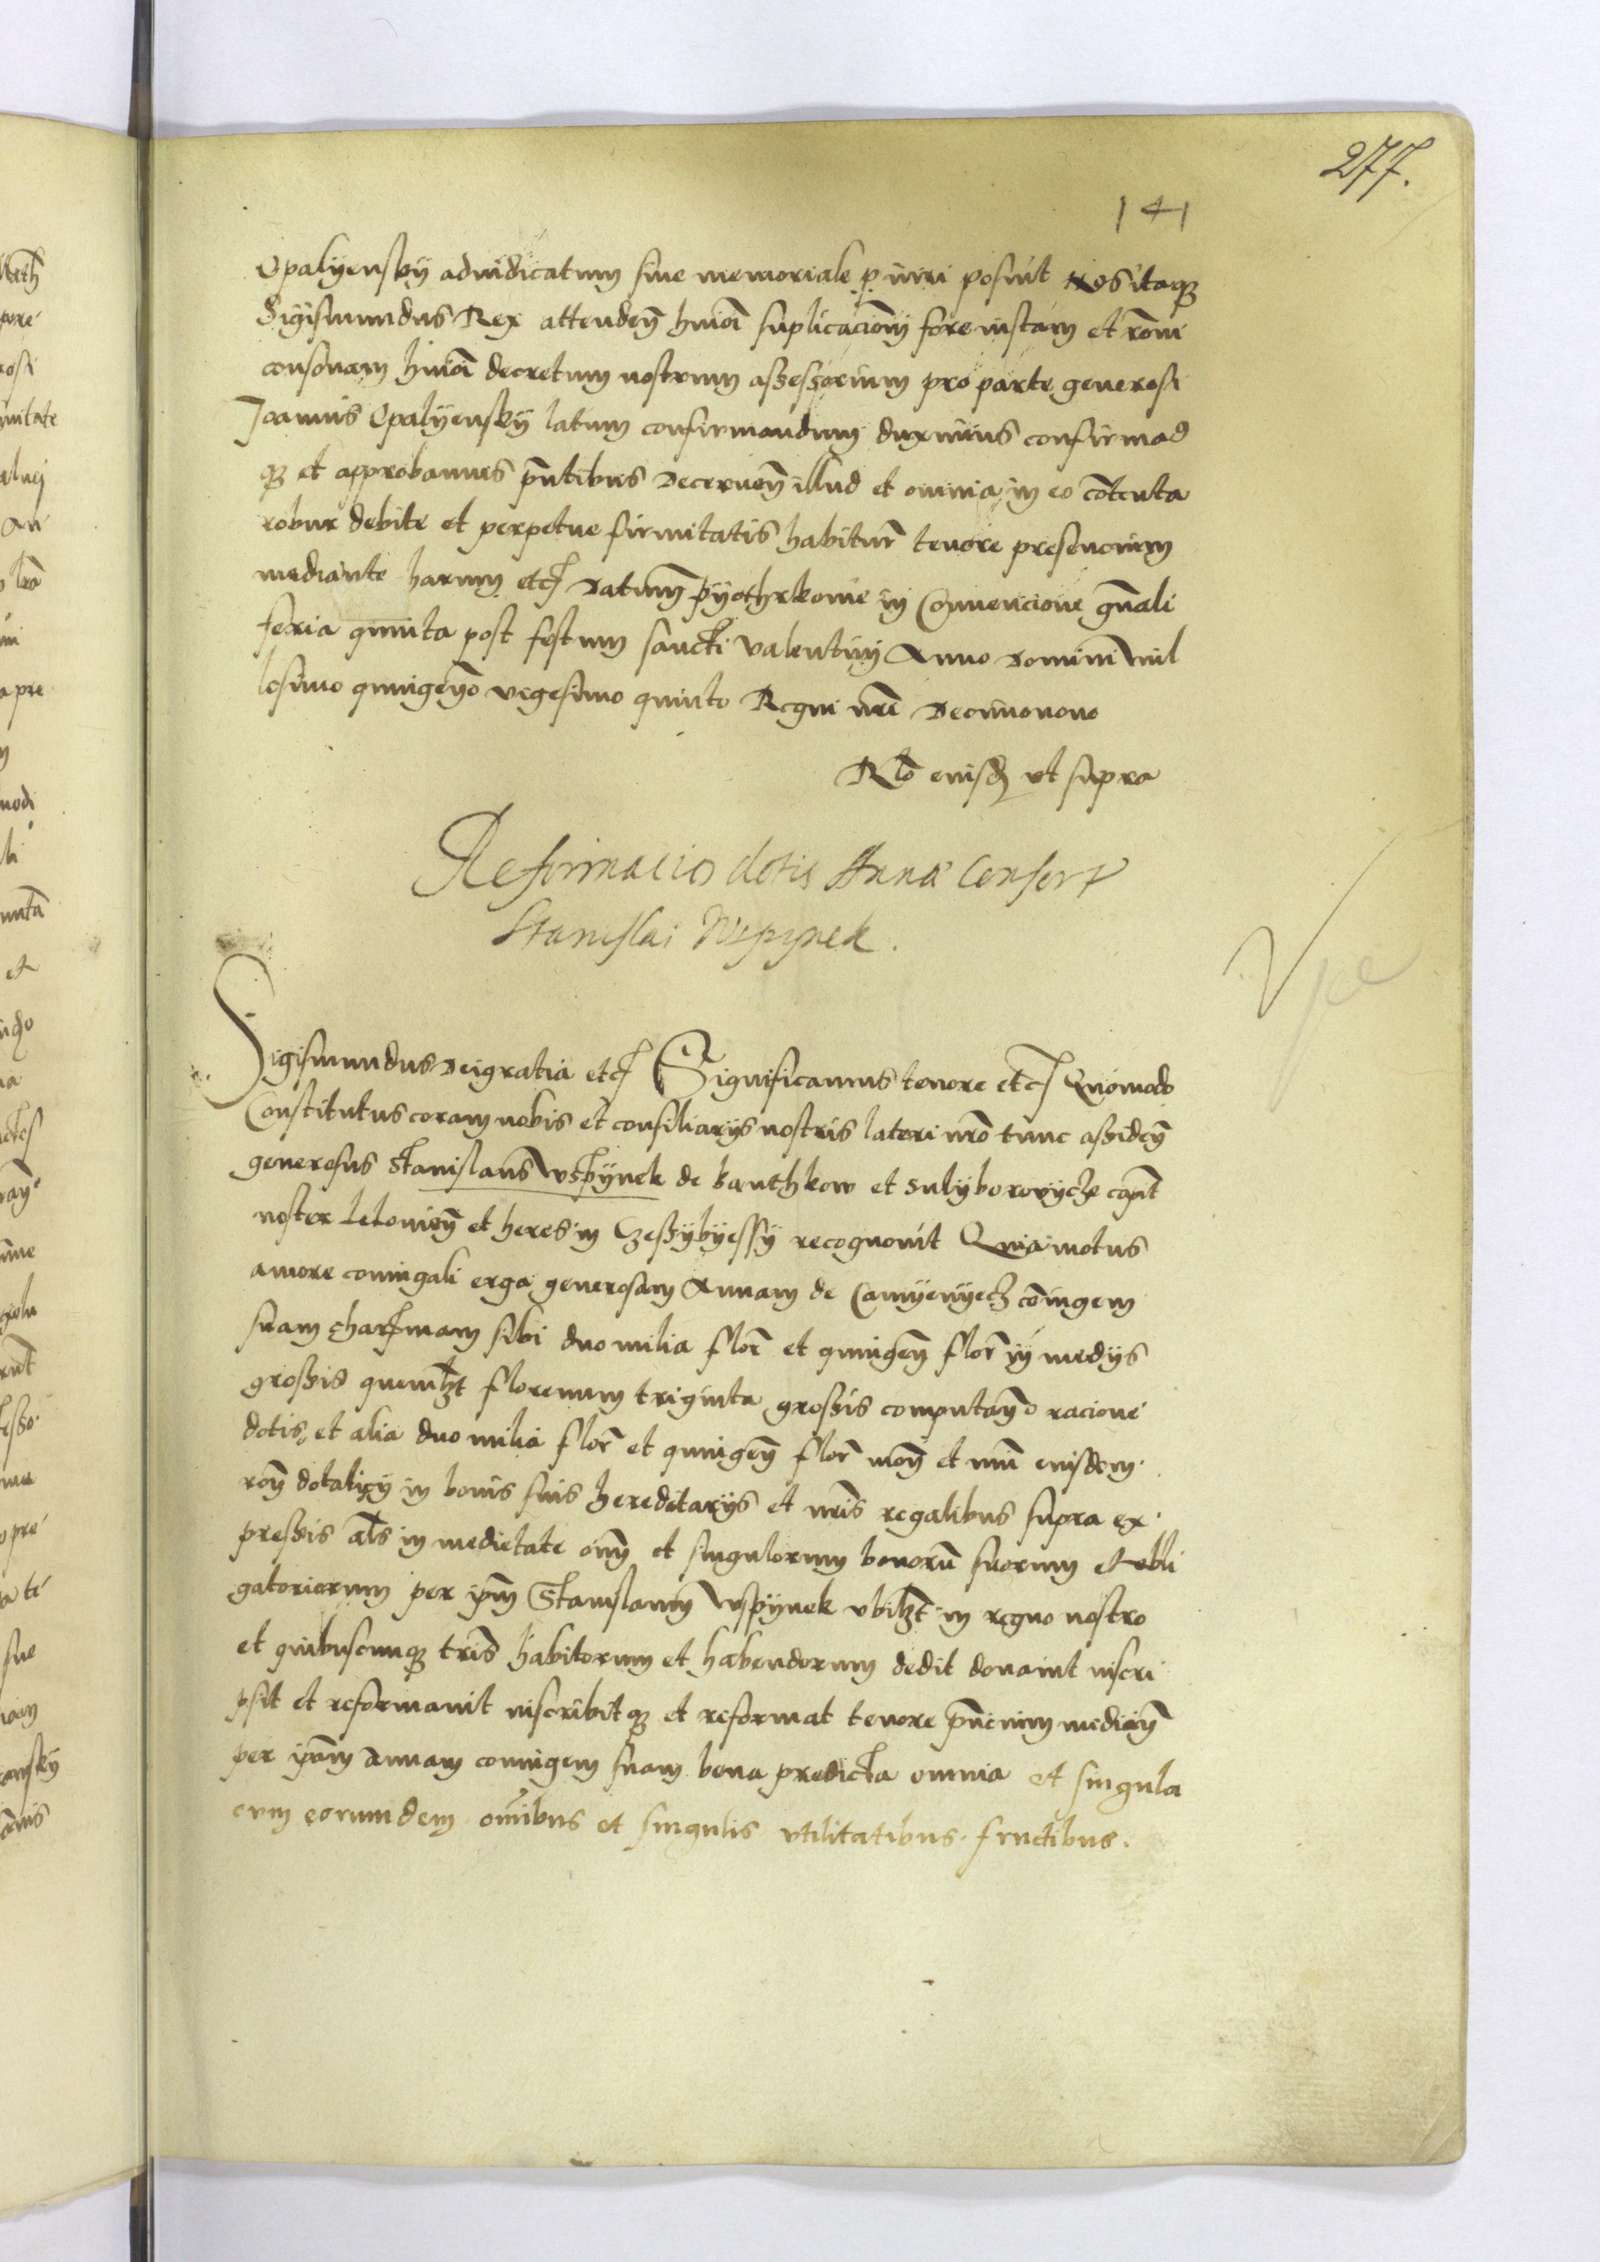 277.
141
Opalyensky adiudicatum siue memoriale p̱ iuri posuit Nos itaqȝ
Sigismundus Rex attendeñ huiōi suplicacioni fore iustam et rōni
consonam huiōi decretum nostrum assessorium pro parte generosi
Joannis Opalyensky latum confirmandum duximus confirmad
qȝ et approbamus p̄ntibus Decerneñ illud et omnia in eo cōtenta
robur debite et perpetue firmitatis habitur̄ tenore presencium
mediante harum etc Datum Pyothrkouie in Conuencione gn̄ali
feria quinta post festum sancti Valentini Anno Domini mil
lesimo quingeño vigesimo quinto Regni nr̄i Decimonono
Rlō eiusd ut supra
Reformacio dotis Annæ Consort
Stanislai Wspynek.
Sigismundus Dei gratia etc Significamus tenore etc Quomodo
Constitutus coram nobis et consiliarys nostris lateri nrō tunc assideñ
generosus Stanislaus Wspynek de Banthkow et Sulyborovycze capit̄
noster Lelouieñ et heres in Czessybyessy recognouit Quia motus
amore coniugali erga generosam Annam de Camyenyecz cōiugem
suam charissimam sibi duo milia flor̄ et quingeñ flor̄ in medys
grossis quemlȝt florenum triginta grossis computañdo racione
dotis et alia duo milia flor̄ et quingeñ flor̄ moñ et nūi eiusdem
roñ dotalicy in bonis suis hereditarys et nr̄is regalibus supra ex
pressis al̄s in medietate oīm et singulorum bonorū suorum et obli
gatoriorum per ip̄m Stanislaum Wspynek vbilȝt in regno nostro
et quibuscunqȝ tr̄is habitorum et habendorum dedit donauit inscri
psit et reformauit inscribitqȝ et reformat tenore pn̄cium median̄
per ip̄am Annam coniugem suam bona predicta omnia et singula
cum eorumdem om̄ibus et singulis vtilitatibus fructibus